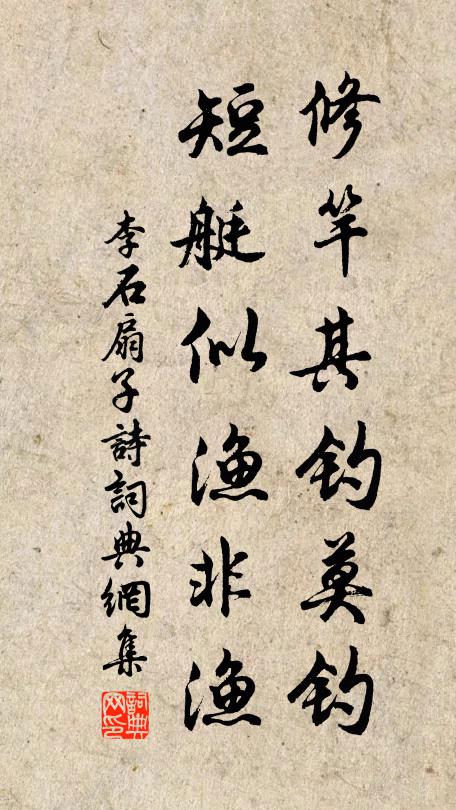 修竿其钓莫钓
短艇似渔非渔
李石扇子詩詞典網集
詞典网印